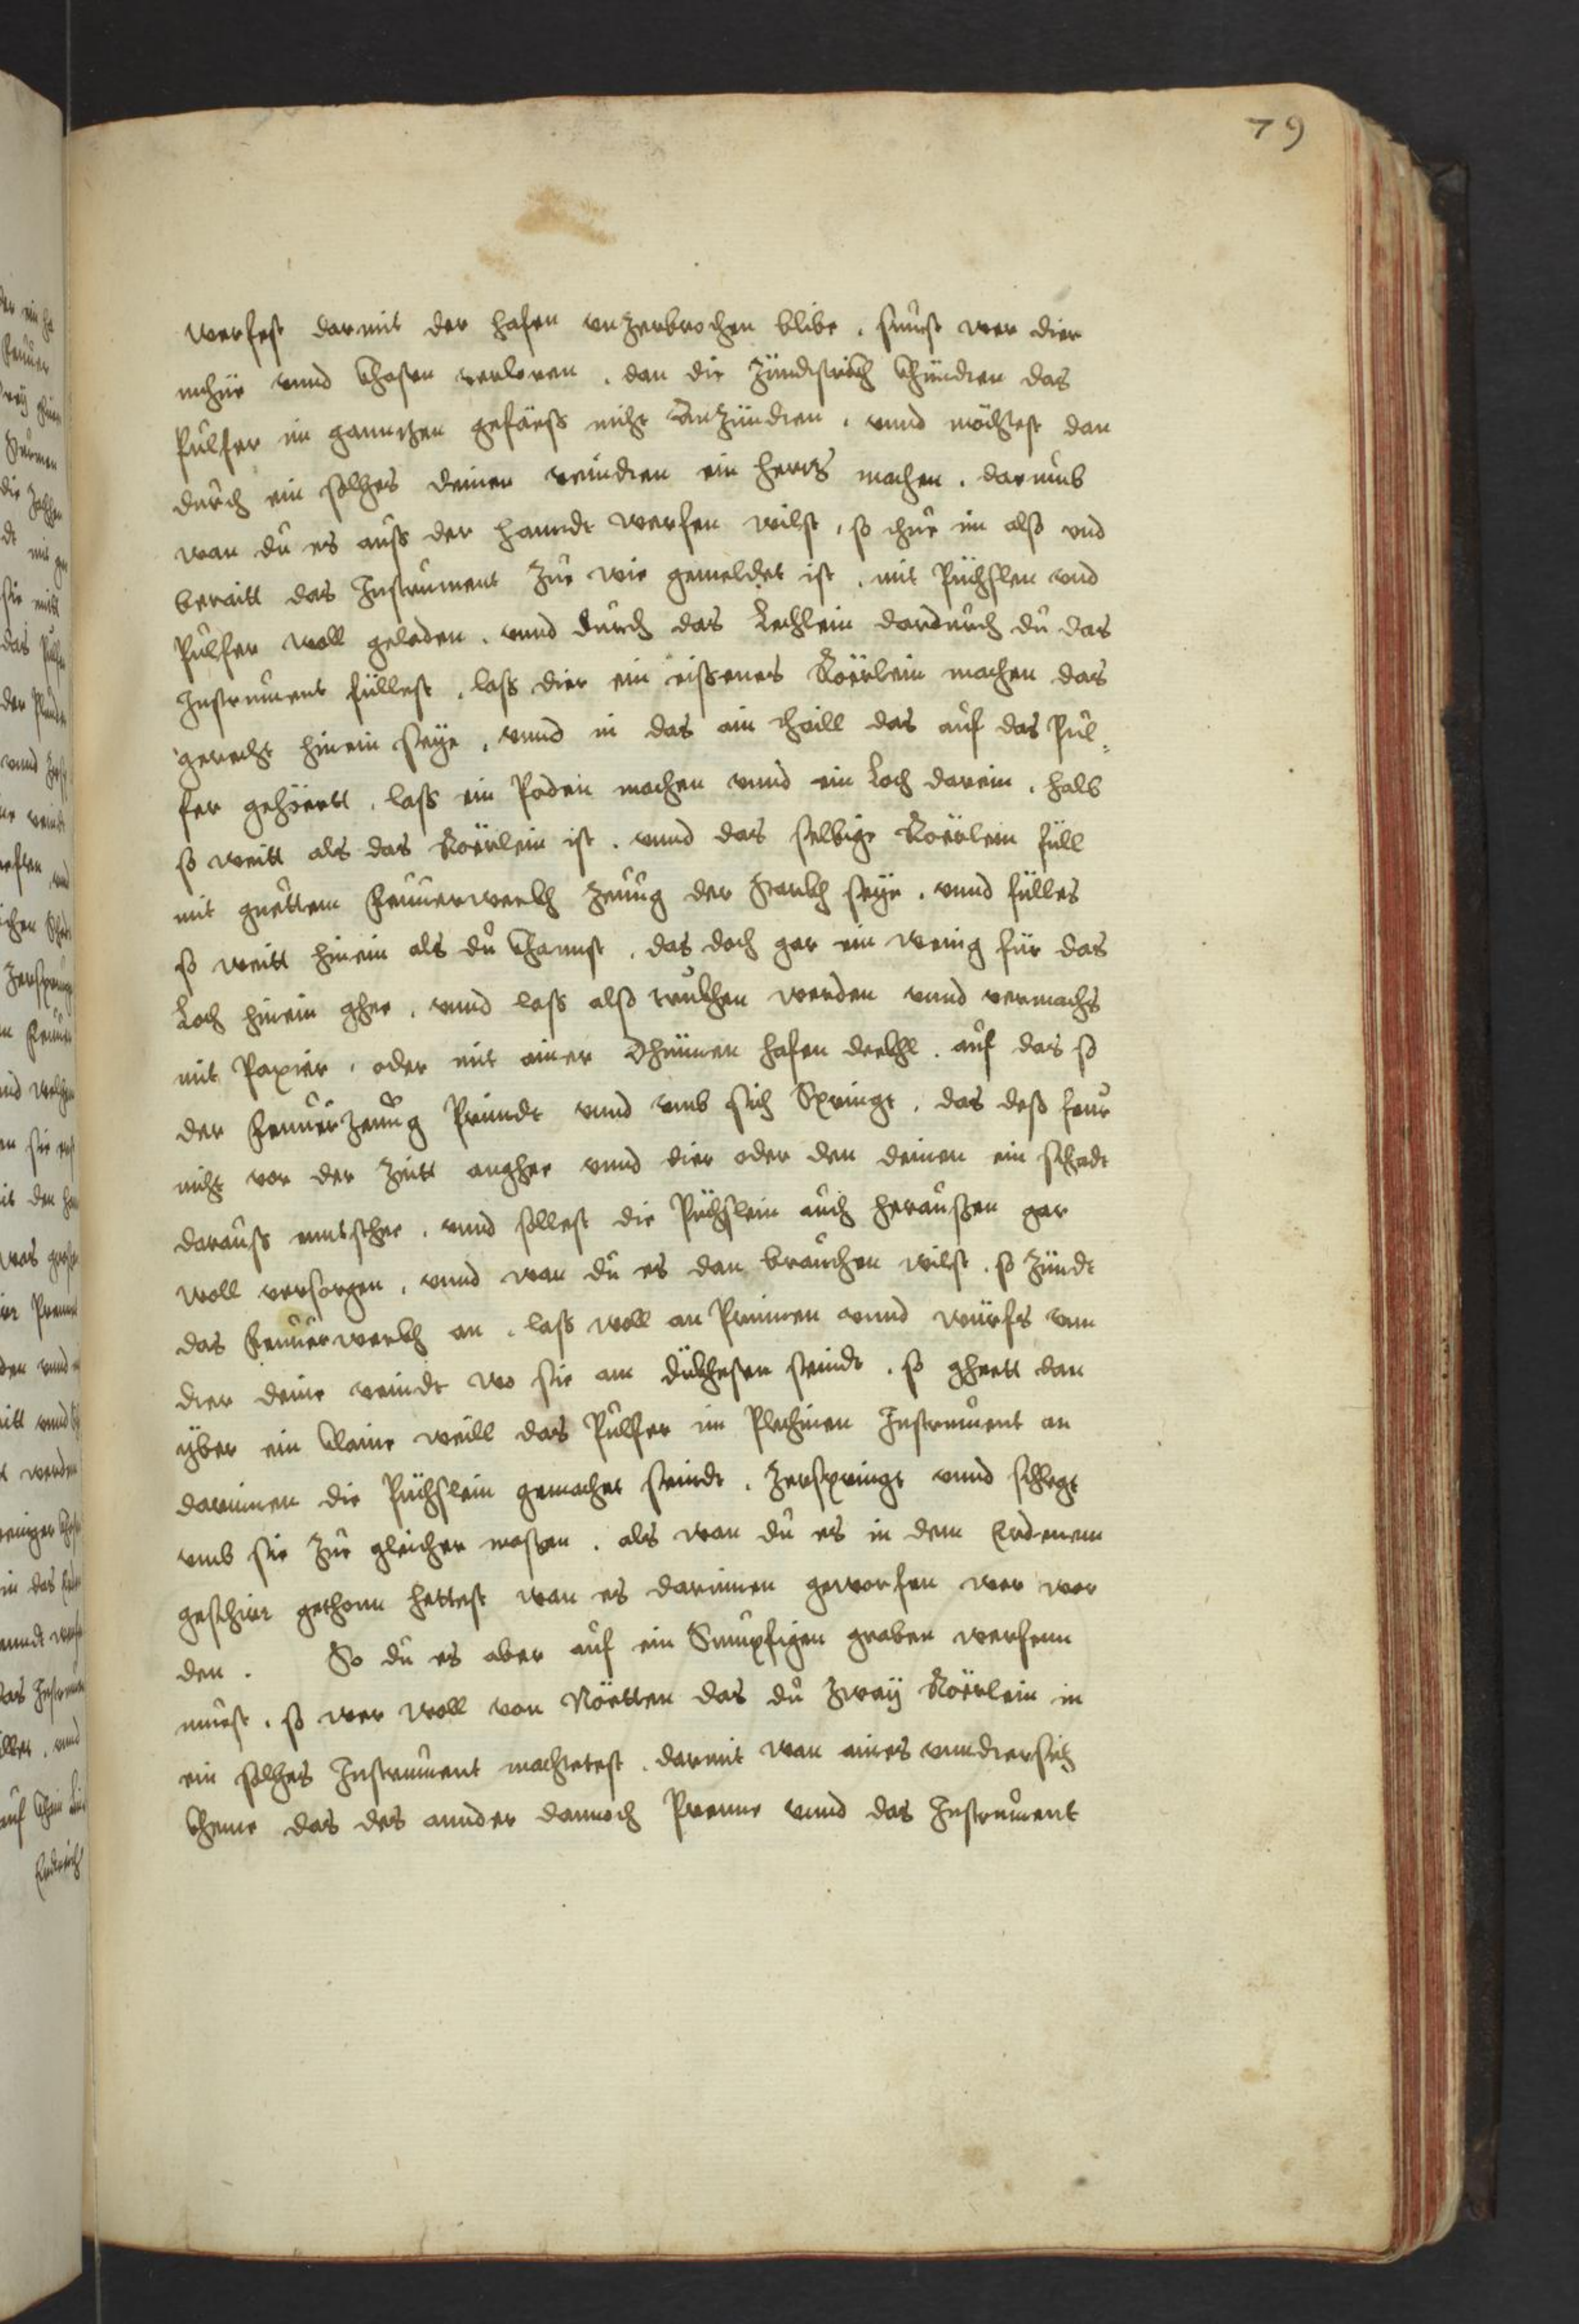 79
werfest darmit der hafen vnzerbrochen blibe, sunst wer dier
miehe vnnd Chosten verloren, dan die Zündtstrickh Chündten das
Pulfer im ganntzen gefäess nicht Anzündten, vnnd möchtest dan
durch ein solches deinen veindten ein hertz machen, darumb
wan du es auss der hanndt werfen wilst, so thue im also vnd
beraitt das Instrument zue wie gemeldet ist, mit Püchslen vnd
Pulfer woll geladen, vnnd durch das Lechlein dardurch du das
Instrument füllest, lass dier ein eissenes Roërlein machen das
gerecht hinein seÿe, vnnd in das ain thaill das auf das Pul-
fer gehöertt, lass ein Poden machen vnnd ein Loch darein, halb
so weitt als das Roërlein ist, vnnd das selbige Roërlein füll
mit guettem Feuuerwerkh Zeuug der starkh seÿe, vnnd fülles
so weitt hinein als du Channst, das doch gar ein wenig für das
Loch hinein ghee, vnnd lass also trukhen werden vnnd vermachs
mit Papier, oder mit ainer dhünnen hafen dekhl, auf das so
der Feuuerzeuug Prindt vnnd vmb sich Springt, das dass feur
nicht vor der Zeitt anghee vnnd dier oder den deinen ein schadt
darauss enntstehe, vnnd sollest die Püchslein auch heraussen gar
woll versorgen, vnnd wan du es dan brauchen wilst, so zündt
das Feuuerwerkh an, lass woll an Prinnen vnnd würfs vnn
dter deine veindt wo sie am dükhesten seindt, so gheett dan
yber ein Claine weill das Pulfer im Plechinen Instrument an
darinnen die Püchslein gemachet seindt, zerspringt vnnd schlegt
vmb sie zue gleicher massen, als wan du es in dem Erdenem
geschirr gethonn hettest wan es darinnen geworfen wer wor
den. So du es aber auf ein Sumpfigen graben werfenn
muest, so wer woll von Nöetten das du zwaÿ Roërlein in
ein solches Instrument machtetest, darmit wan aines vnndtersich
Cheme das des annder dannoch Prenne vnnd das Instrument